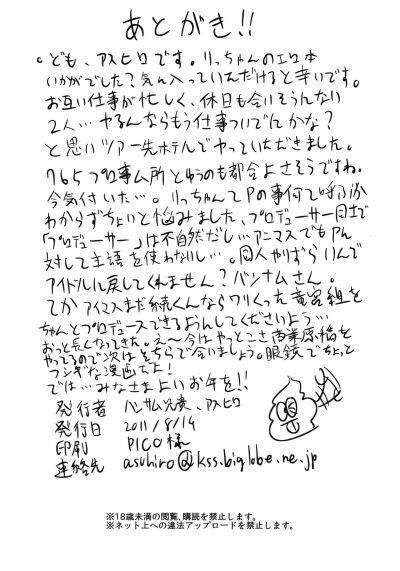 あとがき!!
。ども、アスヒロです。りっちゃんのエロ本
いかがでした?気に入っていただけると幸いです。
お互い仕事が忙しく、休日も会いそうんない
2人…ヤるんならもう仕事ついでにかな?
と思いツアー先ホテルでやっていただきました。
765プロ事ム所とゆうのも都合よさそうですね。
今気付いた…。りっちゃんてPの事何て呼ぶか
わからずちょいと悩みました、プロデューサー同士で
「プロデューサー」は不自然だし…アニマスでもPに
対して主語を使わないし…。同人やりずらいんで
アイドルに戻してくれません?バンナムさん。
てかアイマスまだ続くんならワリくった竜宮組を
ちゃんとプロデュースできるおんしてくださいよう…
おっと長くなってきた。え〜今はやっとこさ商業原稿を
やってるので次はそちらで会いましょう。眼鏡でちょっと
フシギな漫画でよ!
では…みなさまよいお年を!!
発行者 ハンサム兄貴、アスヒロ
発行日 2011/8/14
印刷 PICO様
連絡先 asuhiro@kss.biglobe.ne.jp
※18歳未満の閲覧、購読を禁止します。
※ネット上への違法アップロードを禁止します。